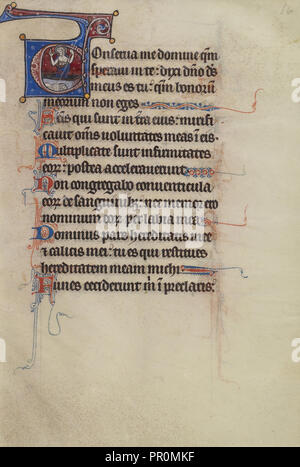 Conserua me domine qm̄
speraui in te: dixi dn̄o ds̄
meus es tu: qm̄ bonorū
meorum non eges
Scis qui sunt in t̄ra eius: mirifi
cauit om̄s uoluntates meas ī eis
Multiplicate sunt infirmitates
eoꝝ: postea accelerauerūt
Non congregabo conuenticula
eoꝝ de sanguinibꝫ: nec memor ero
nominum eoꝝ per labia mea
Dominus pars hereditatis mee
et calicis mei: tu es qui restitues
hereditatem meam michi
Funes ceciderunt m̄ ī preclaris:
alamy
PR0MKF